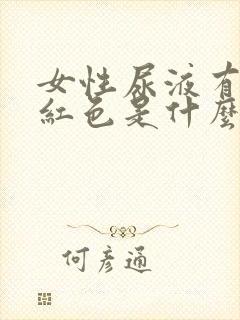 女性尿液有
紅色是什麼
何彥通